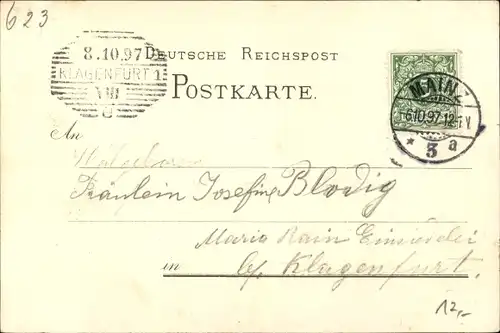 623
8.10.97
KLAGENFURT 1
VIII
DEUTSCHE REICHSPOST
POSTKARTE.
MAINZ
6.10.97.12-1 V
* 3 a
An
Fräulein Josefine Blodig
Maria Rain
in Klagenfurt.
12,-